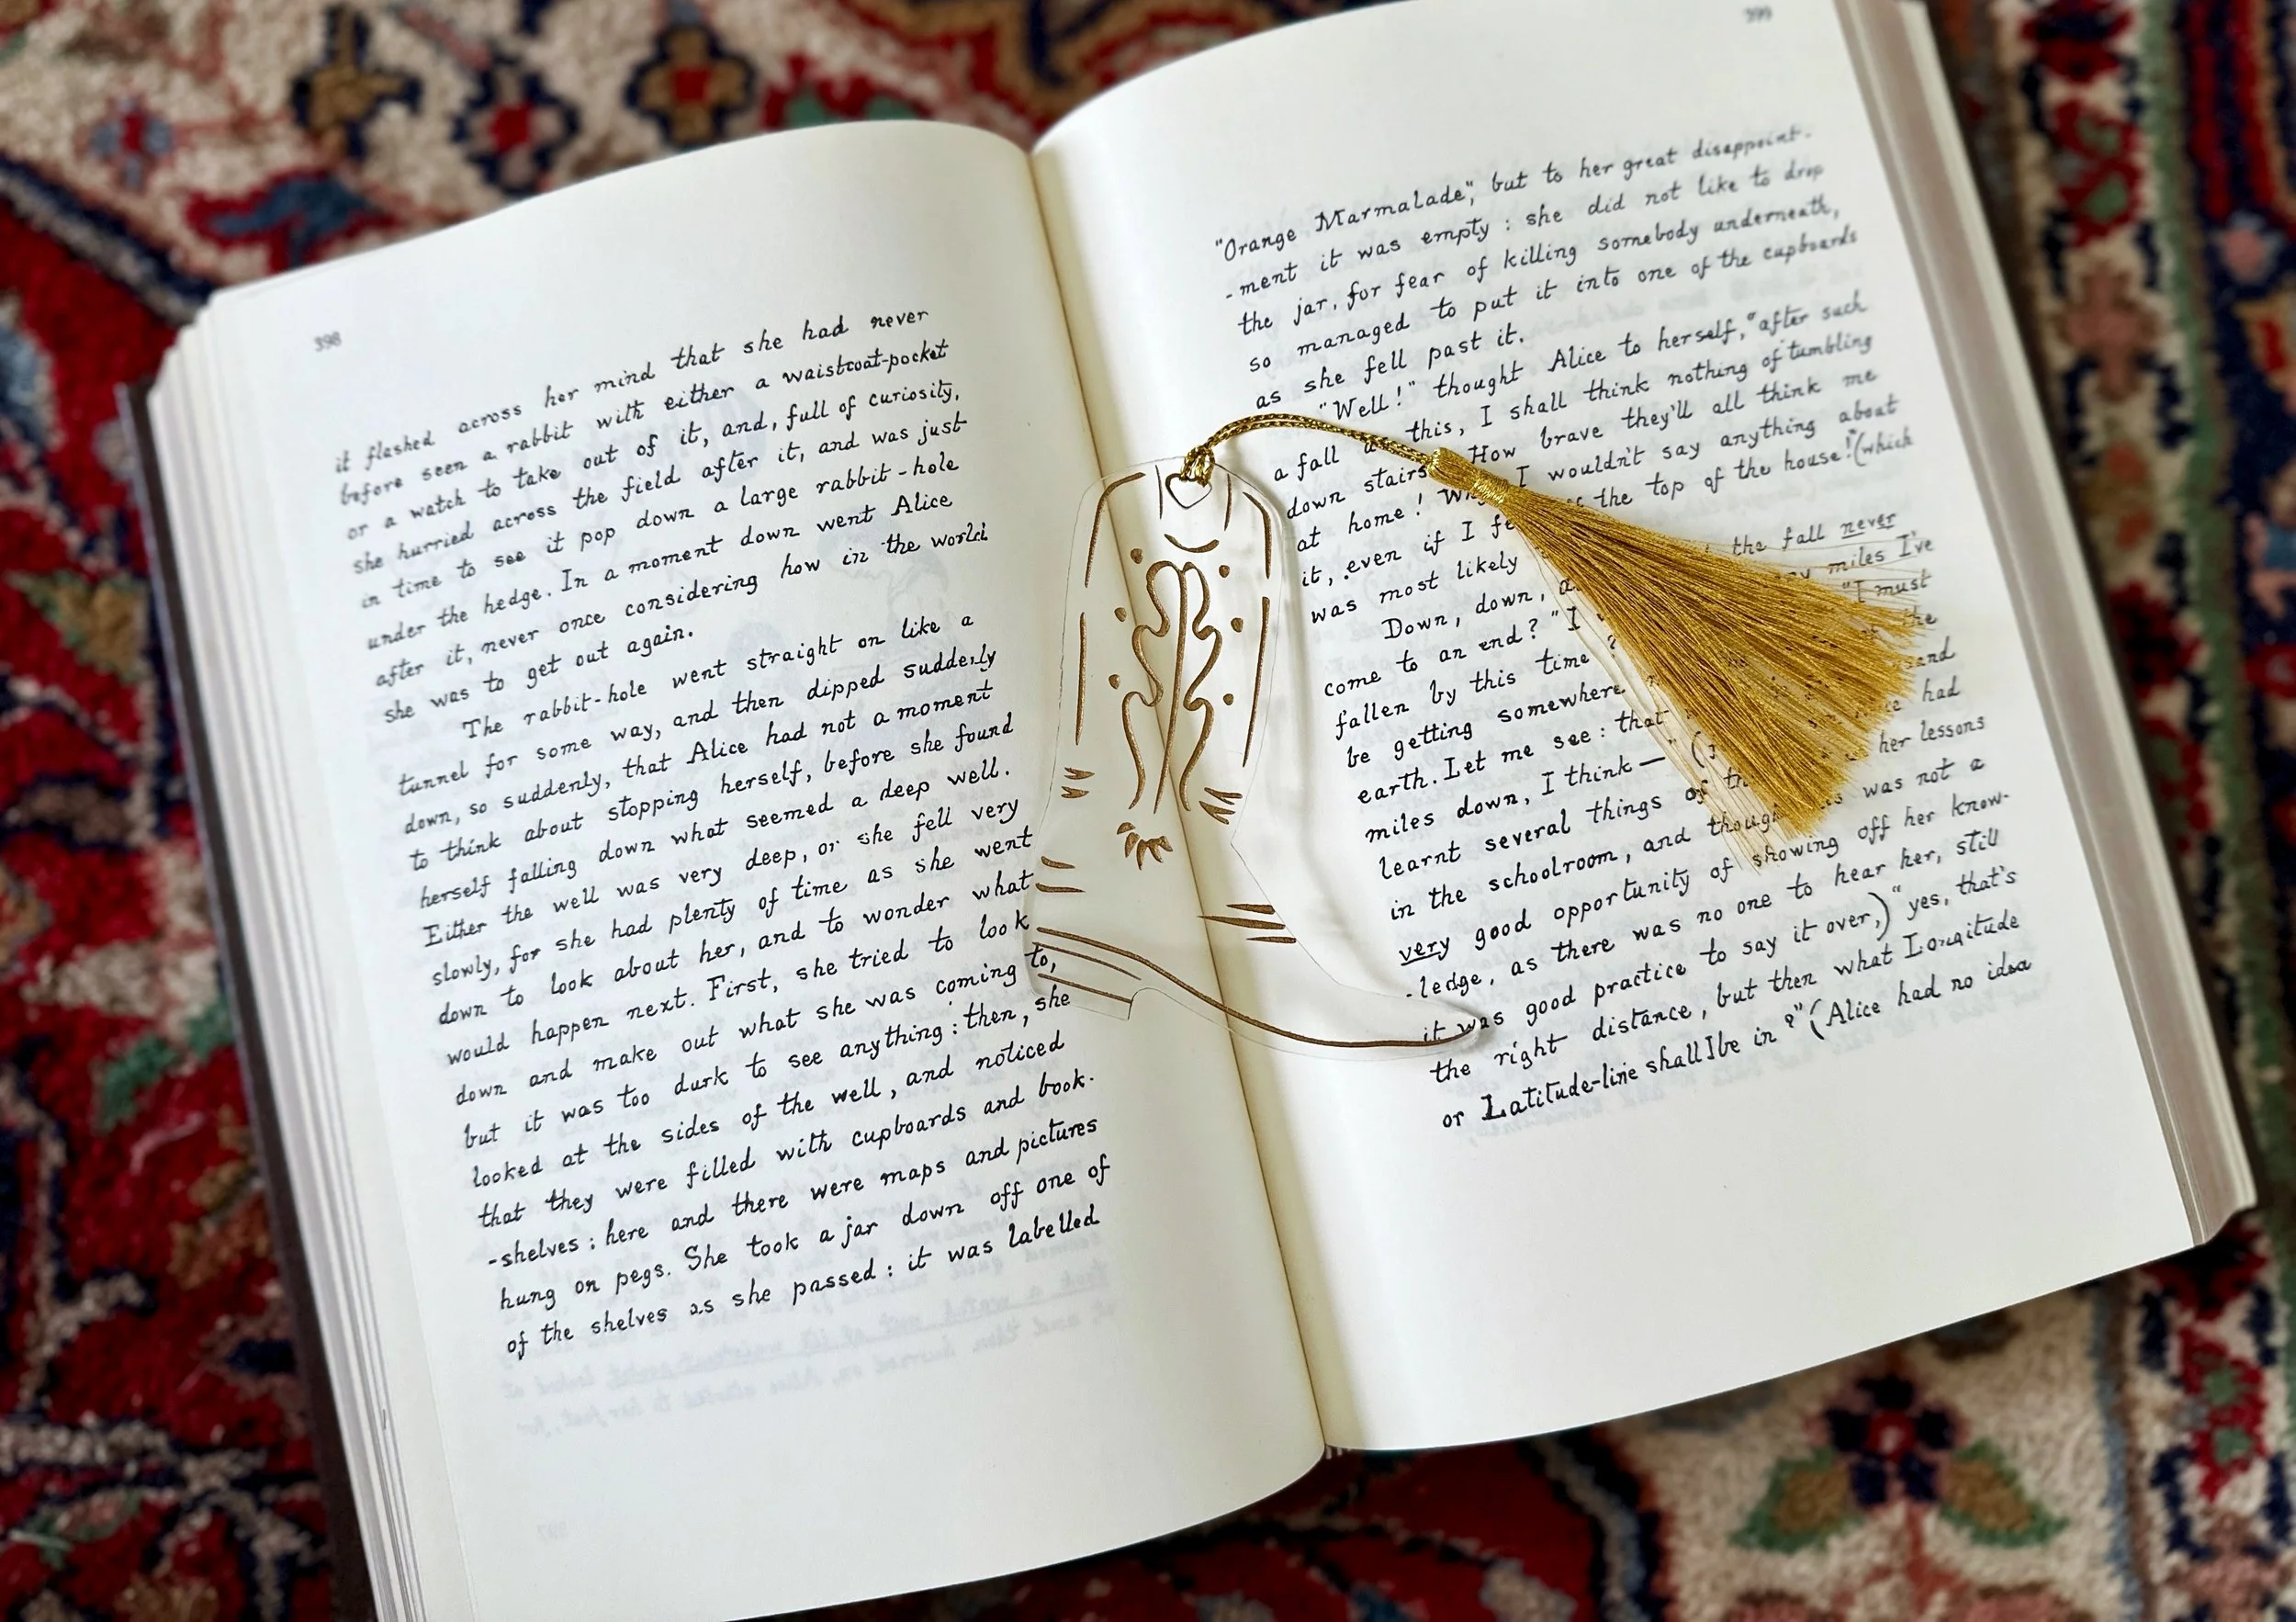 398
it flashed across her mind that she had never
before seen a rabbit with either a waistcoat-pocket
or a watch to take out of it, and, full of curiosity,
she hurried across the field after it, and was just
in time to see it pop down a large rabbit-hole
under the hedge. In a moment down went Alice
after it, never once considering how in the world
she was to get out again.
The rabbit-hole went straight on like a
tunnel for some way, and then dipped suddenly
down, so suddenly, that Alice had not a moment
to think about stopping herself, before she found
herself falling down what seemed a deep well.
Either the well was very deep, or she fell very
slowly, for she had plenty of time as she went
down to look about her, and to wonder what
would happen next. First, she tried to look
down and make out what she was coming to,
but it was too dark to see anything: then, she
looked at the sides of the well, and noticed
that they were filled with cupboards and book-
-shelves; here and there were maps and pictures
hung on pegs. She took a jar down off one of
of the shelves as she passed: it was labelled
399
"Orange Marmalade," but to her great disappoint-
-ment it was empty: she did not like to drop
the jar, for fear of killing somebody underneath,
so managed to put it into one of the cupboards
as she fell past it.
"Well!" thought Alice to herself, "after such
a fall a this, I shall think nothing of tumbling
down stairs How brave they'll all think me
at home! Why I wouldn't say anything about
it, even if I fe the top of the house!" (which
was most likely
Down, down, the fall never
come to an end? "I miles I've
fallen by this time? "I must
be getting somewhere the
earth. Let me see: that
miles down, I think—" ( had
learnt several things of her lessons
in the schoolroom, and though was not a
very good opportunity of showing off her know-
-ledge, as there was no one to hear her, still
it was good practice to say it over,) "yes, that's
the right distance, but then what Longitude
or Latitude-line shall I be in?" (Alice had no idea